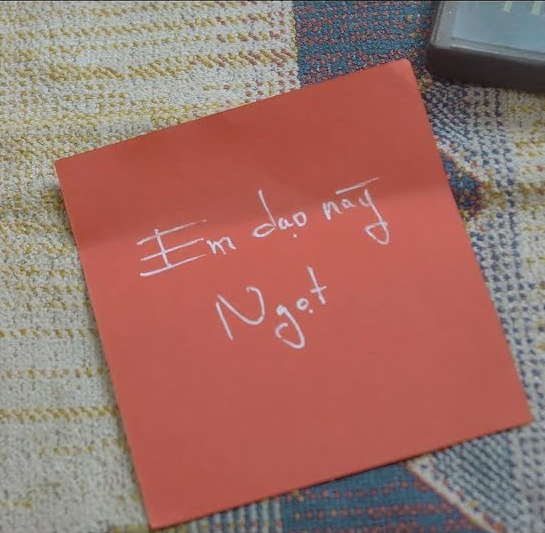 Em dạo này
Ngọt